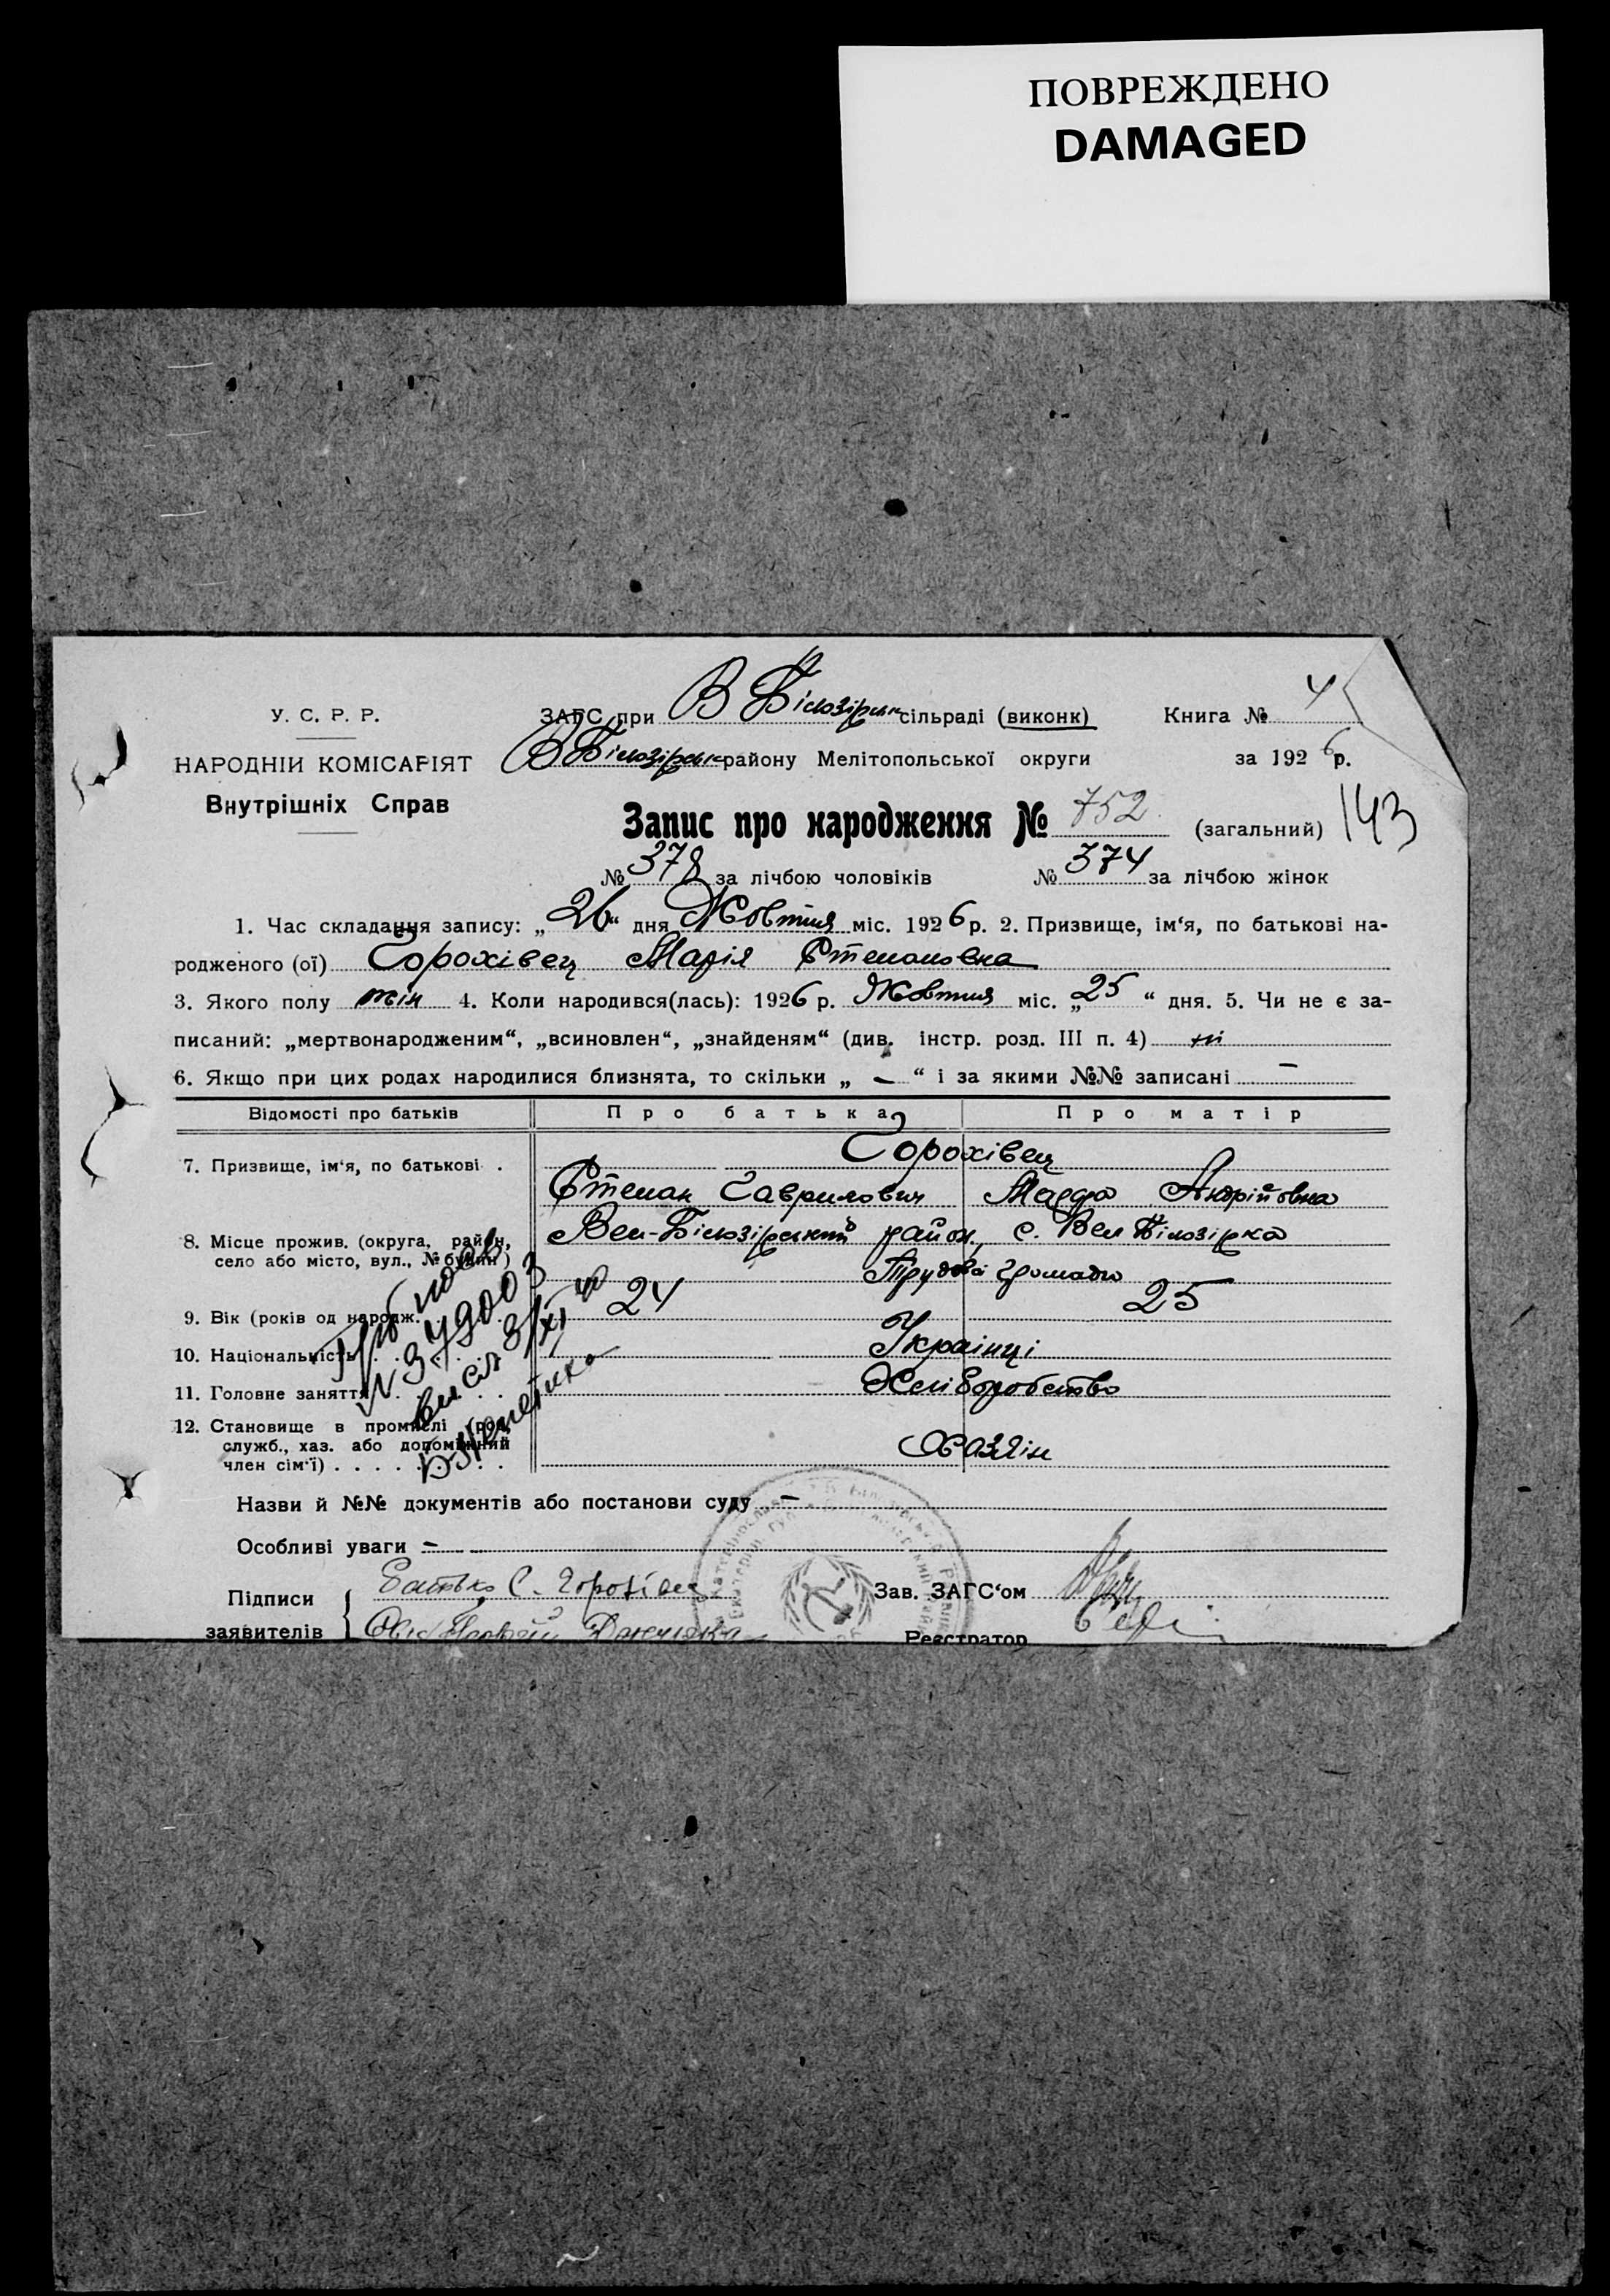 ПОВРЕЖДЕНО
DAMAGED
У. С. Р. Р. ЗАГС при В Білозірськ сільраді (виконк) Книга № 4
НАРОДНІИ КОМІСАРІЯТ В Білозірськ району Мелітопольської округи за 1926 р.
Внутрішніх Справ
Запис про народження № 752 (загальний) 143
№ 378 за лічбою чоловіків № 374 за лічбою жінок
1. Час складання запису: „26“ дня Жовтня міс. 1926 р. 2. Призвище, ім‘я, по батькові на-
родженого (ої) Горохівец Марія Степановна
3. Якого полу жін 4. Коли народився(лась): 1926 р. Жовтня міс. „25“ дня. 5. Чи не є за-
писаний: „мертвонародженим“, „всиновлен“, „знайденям“ (див. інстр. розд. III п. 4) ні
6. Якщо при цих родах народилися близнята, то скільки „ — “ і за якими №№ записані —
Відомості про батьків Про батька Про матір
7. Призвище, ім‘я, по батькові . Горохівец
Степан Гаврилович Андрійовна
8. Місце прожив. (округа, район, Вел-Білозірський район, с. Вел Білозірка
село або місто, вул., № будин) Трудова громада
9. Вік (років од народж. 24 25
10. Національність Українці
11. Головне заняття Хліборобство
12. Становище в промислі (роб,
служб., хаз. або допоміжний Хазяін
член сім‘ї) . . . . . . .
№ 39003
Назви й №№ документів або постанови суду —
Особливі уваги —
Підписи Батько С. Горохівец Зав. ЗАГС‘ом
заявителів Реєстратор